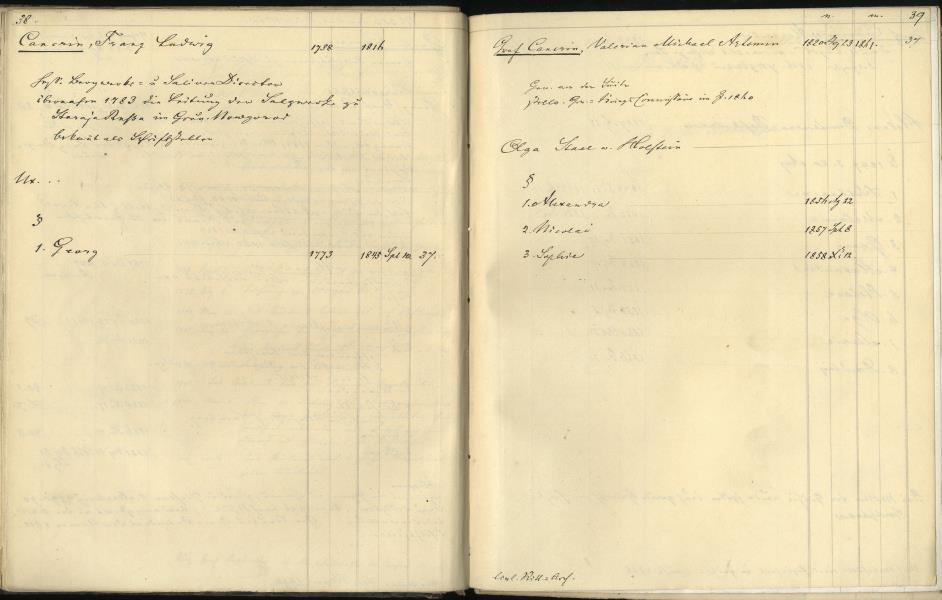 38.
Cancrin, Franz Ludwig 1738 1816
Hess. Bergwerks- u Salinen Director
übernahm 1783 die Leitung der Salzwerke zu
Staraja Russa in Gouv. Nowgorod
bekannt als Schriftsteller
Ux. . .
§
1. Georg 1773 1845 Spt 10. 37.
n. m. 39
Graf Cancrin, Valerian Michael Artemin 1820 1861. 37
Gen. an der Suite
Olga Stael v. Holstein
§
1. Alexandra 1856 12
2. Nicolai 1857 Spt 8
3. Sophie 1858 12